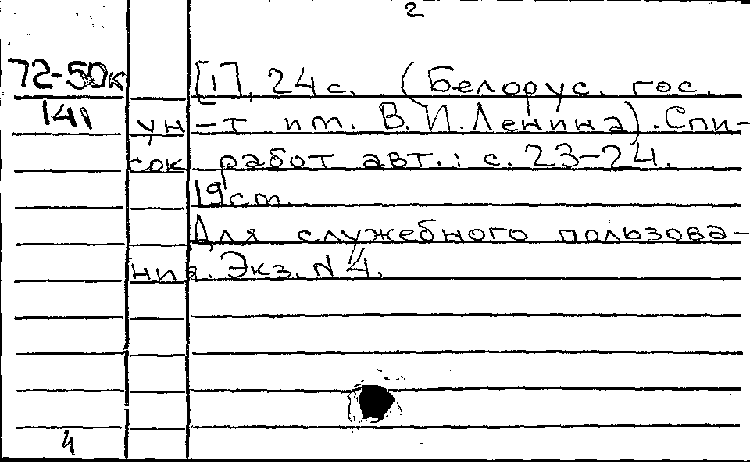 2
72-50к [1], 24 с. (Белорус. гос.
141 ун-т им. В.И.Ленина). Спи-
сок работ авт.: с. 23-24.
19 см.
Для служебного пользова-
ния. Экз. N 4.
4